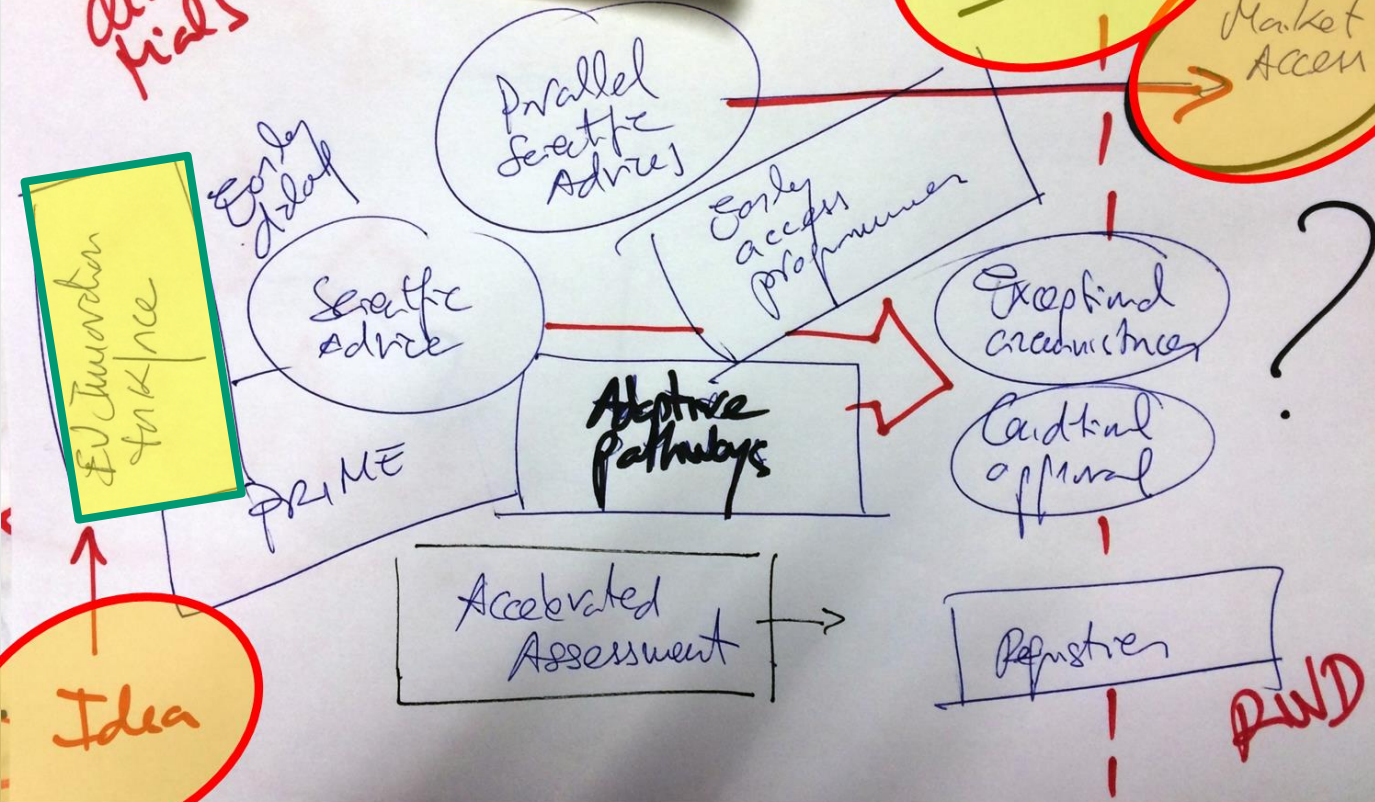 trials
Market
Access
Parallel
Scientific
Advices
Early
dialog
Early
access
programmes
EU Innovation
Scientific
Advice
Exceptional
circumstances
?
Adaptive
Pathways
Conditional
approval
PRIME
Accelerated
Assessment
Registries
RWD
Idea